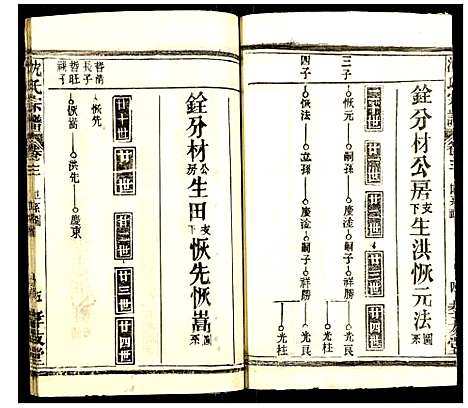 銓分材公房支下生洪恢元法圖系
廿世
廿一世
廿二世
廿三世
廿四世
三子
恢元
嗣孫
慶淦
嗣子
祥勝
光民
光柱
四子
恢法
立孫
慶淦
嗣子
祥勝
光民
光柱
銓分材公房生田支下恢先恢嵩圖系
廿世
廿一世
廿二世
廿三世
廿四世
恢先
哲清
長子
哲旺
恢嵩
洪先
慶東
沈氏宗譜
卷三